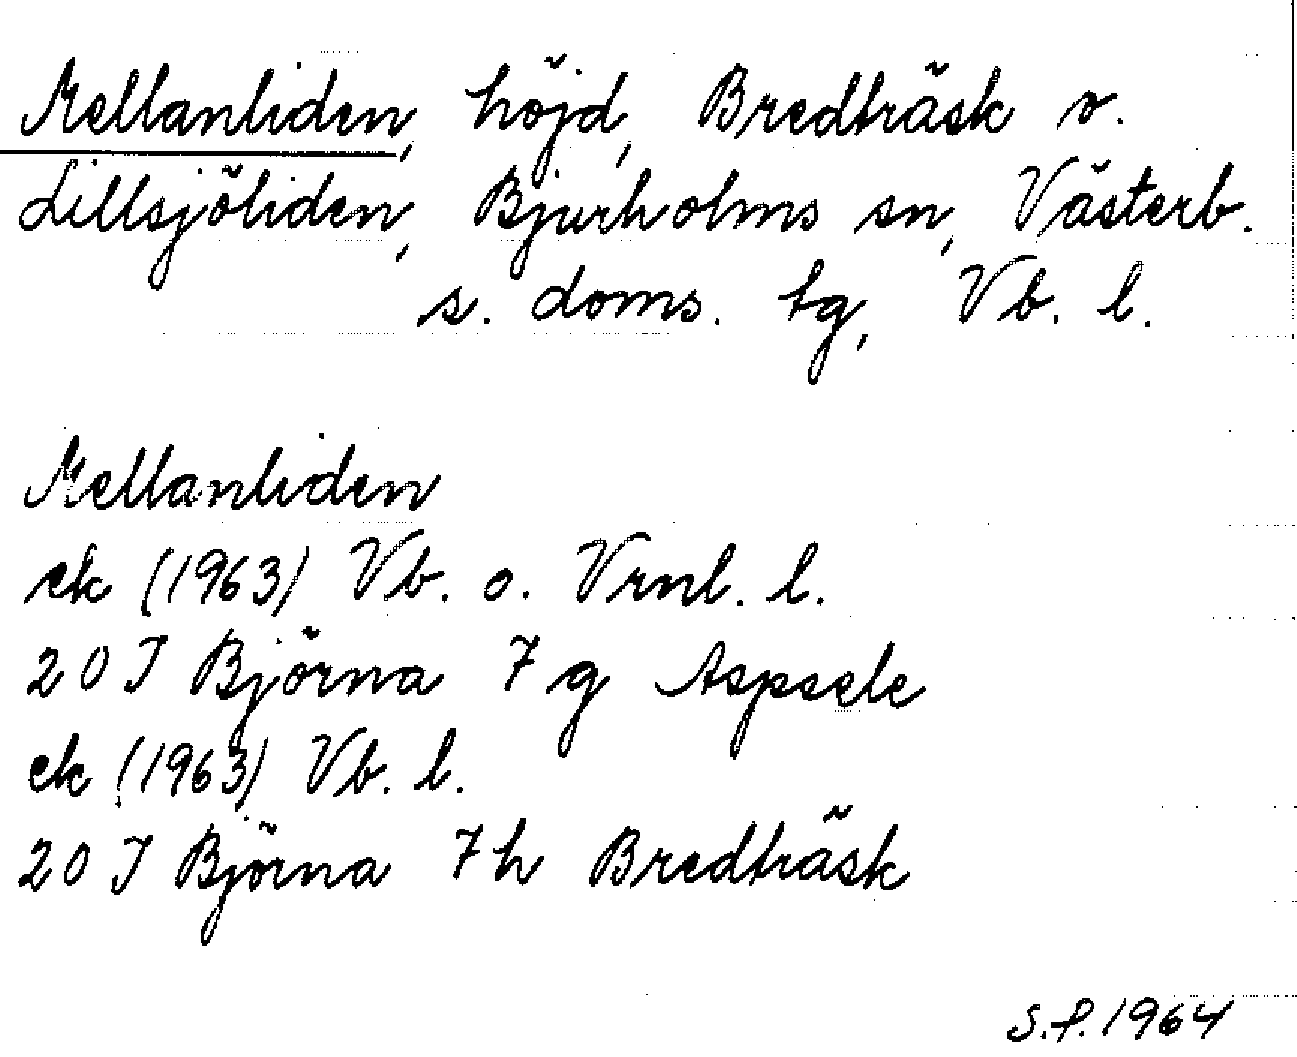 Mellanliden, höjd, Bredträsk o.
Lillsjöliden, Bjurholms sn, Västerb.
s. doms. tg, Vb. l.
Mellanliden
ek (1963) Vb. o. Vrnl. l.
20 J Björna 7 g Aspsele
ek (1963) Vb. l.
20 J Björna 7 h Bredträsk
S.f. 1964